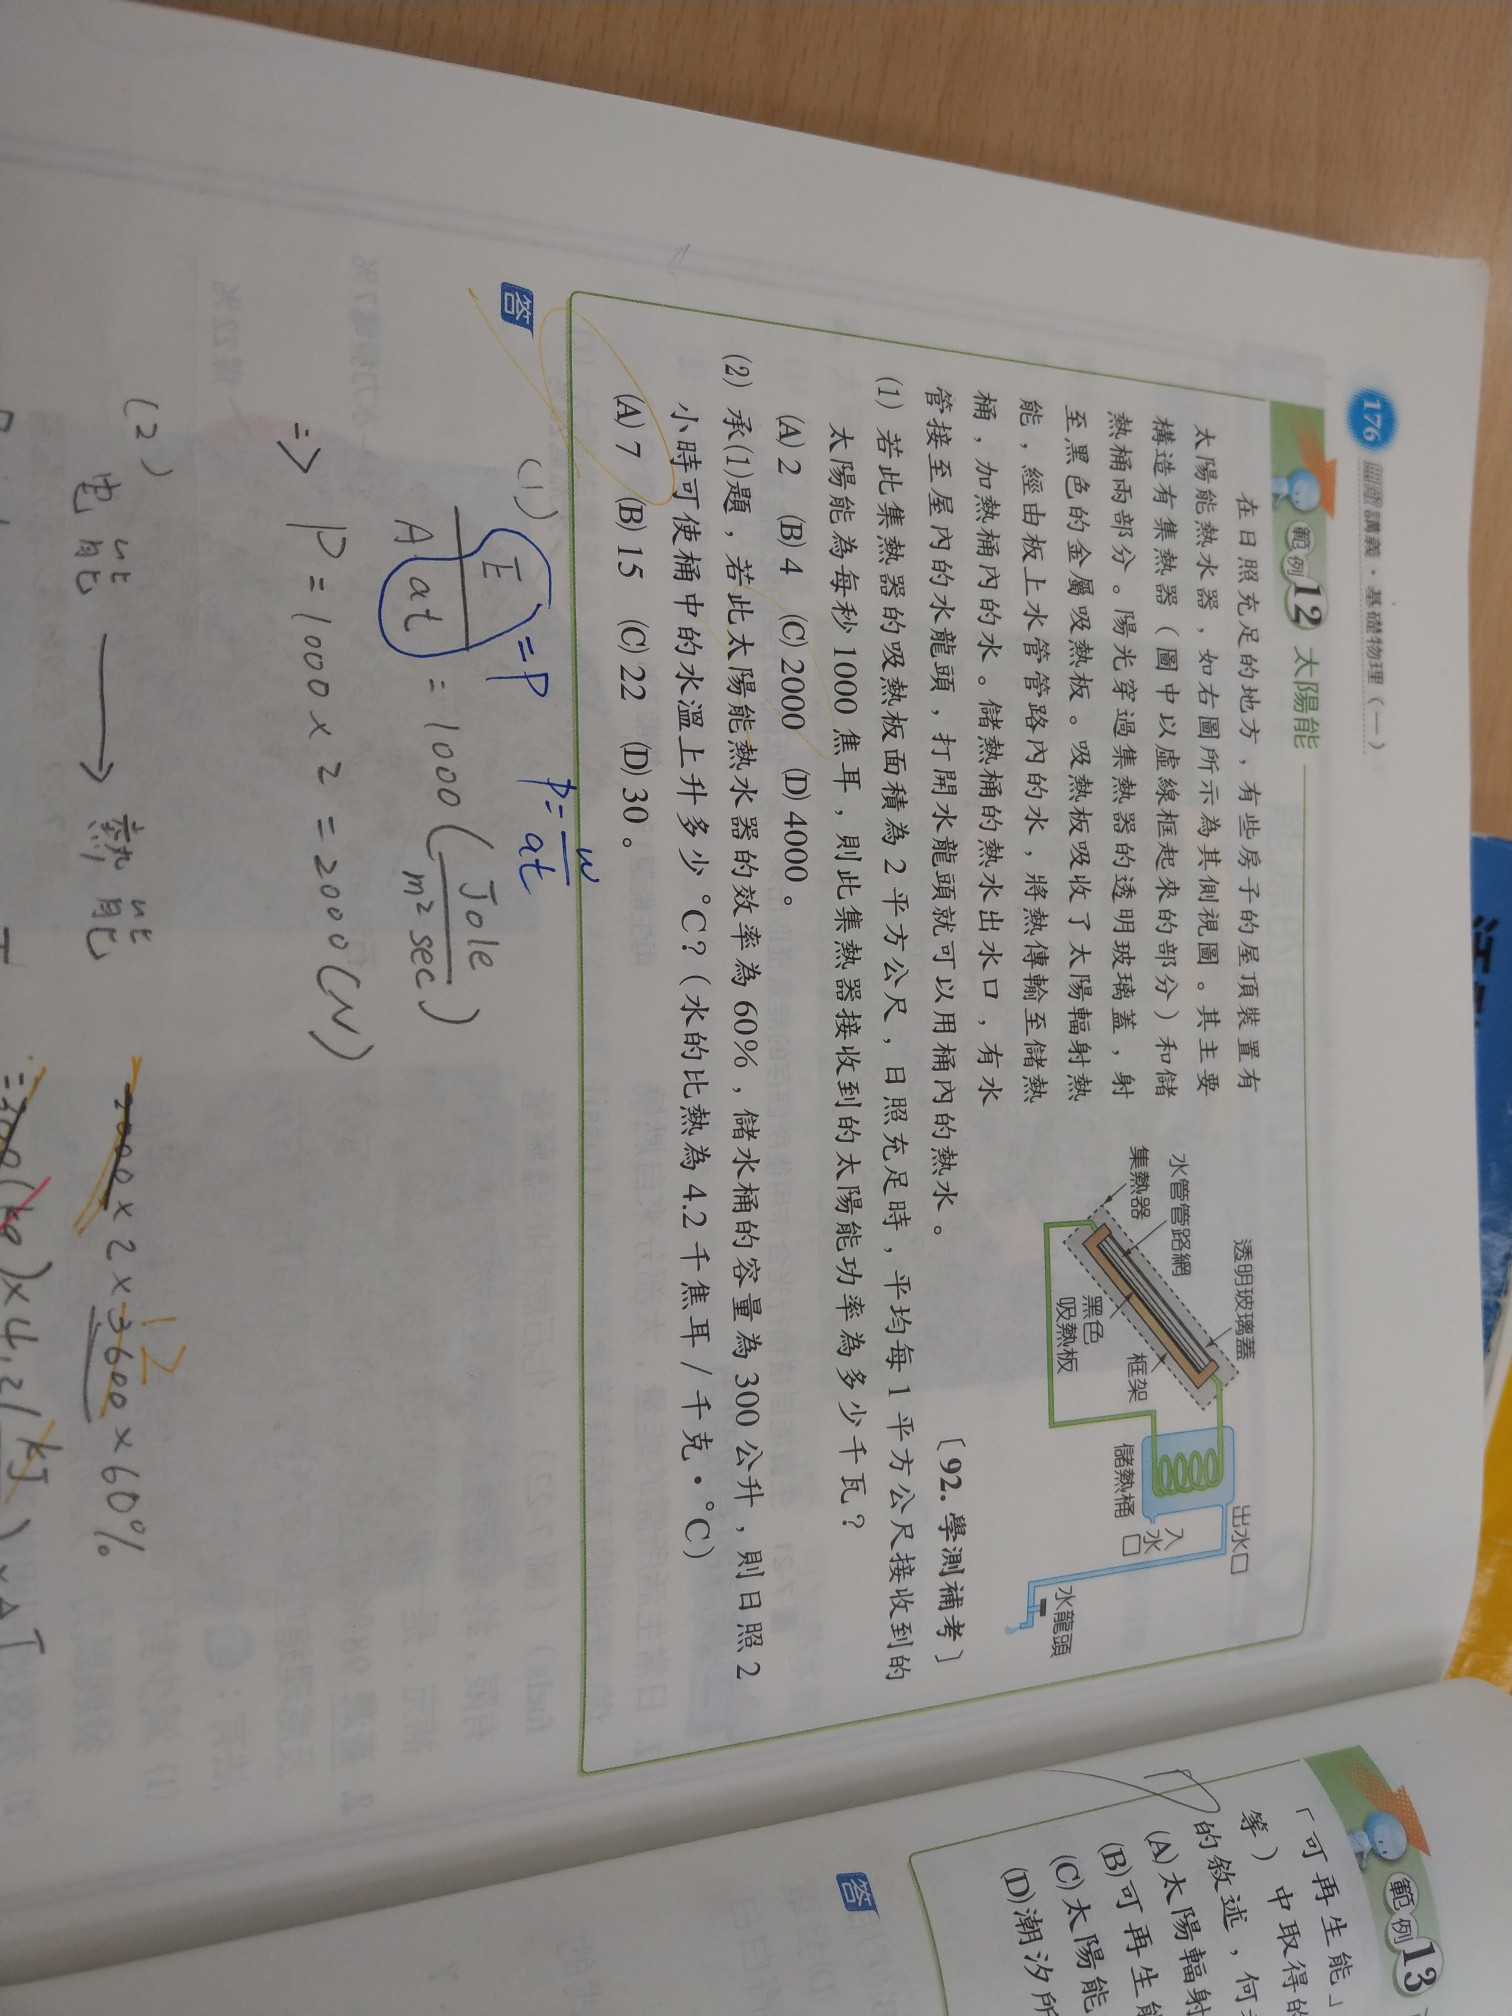 176 講義・基礎物理(一)
範例12 太陽能
在日照充足的地方，有些房子的屋頂裝置有
太陽能熱水器，如右圖所示為其側視圖。其主要
構造有集熱器（圖中以虛線框起來的部分）和儲
熱桶兩部分。陽光穿過集熱器的透明玻璃蓋，射
至黑色的金屬吸熱板。吸熱板吸收了太陽輻射熱
能，經由板上水管管路內的水，將熱傳輸至儲熱
桶，加熱桶內的水。儲熱桶的熱水出水口，有水
管接至屋內的水龍頭，打開水龍頭就可以用桶內的熱水。
〔92.學測補考〕
透明玻璃蓋
水管管路網
集熱器
黑色
吸熱板
框架
儲熱桶
出水口
入
水
口
水龍頭
(1) 若此集熱器的吸熱板面積為2平方公尺，日照充足時，平均每1平方公尺接收到的
太陽能為每秒1000焦耳，則此集熱器接收到的太陽能功率為多少千瓦？
(A) 2 (B) 4 (C) 2000 (D) 4000。
(2) 承(1)題，若此太陽能熱水器的效率為60%，儲水桶的容量為300公升，則日照2
小時可使桶中的水溫上升多少°C？（水的比熱為4.2千焦耳/千克・°C）
(A) 7 (B) 15 (C) 22 (D) 30。
答
(1)
E = P
A at = 1000 ( Jole
m² sec )
P = w
at
⇒ P = 1000 × 2 = 2000 (W)
(2)
电能 → 熱能
2000 × 2 × 3600 × 60%
12
(kg) × 4.2( kJ ) × ΔT
範例13
「可再生能」
等）中取得的
的敘述，何
(A)太陽輻射
(B)可再生能
(C)太陽能
(D)潮汐所
答